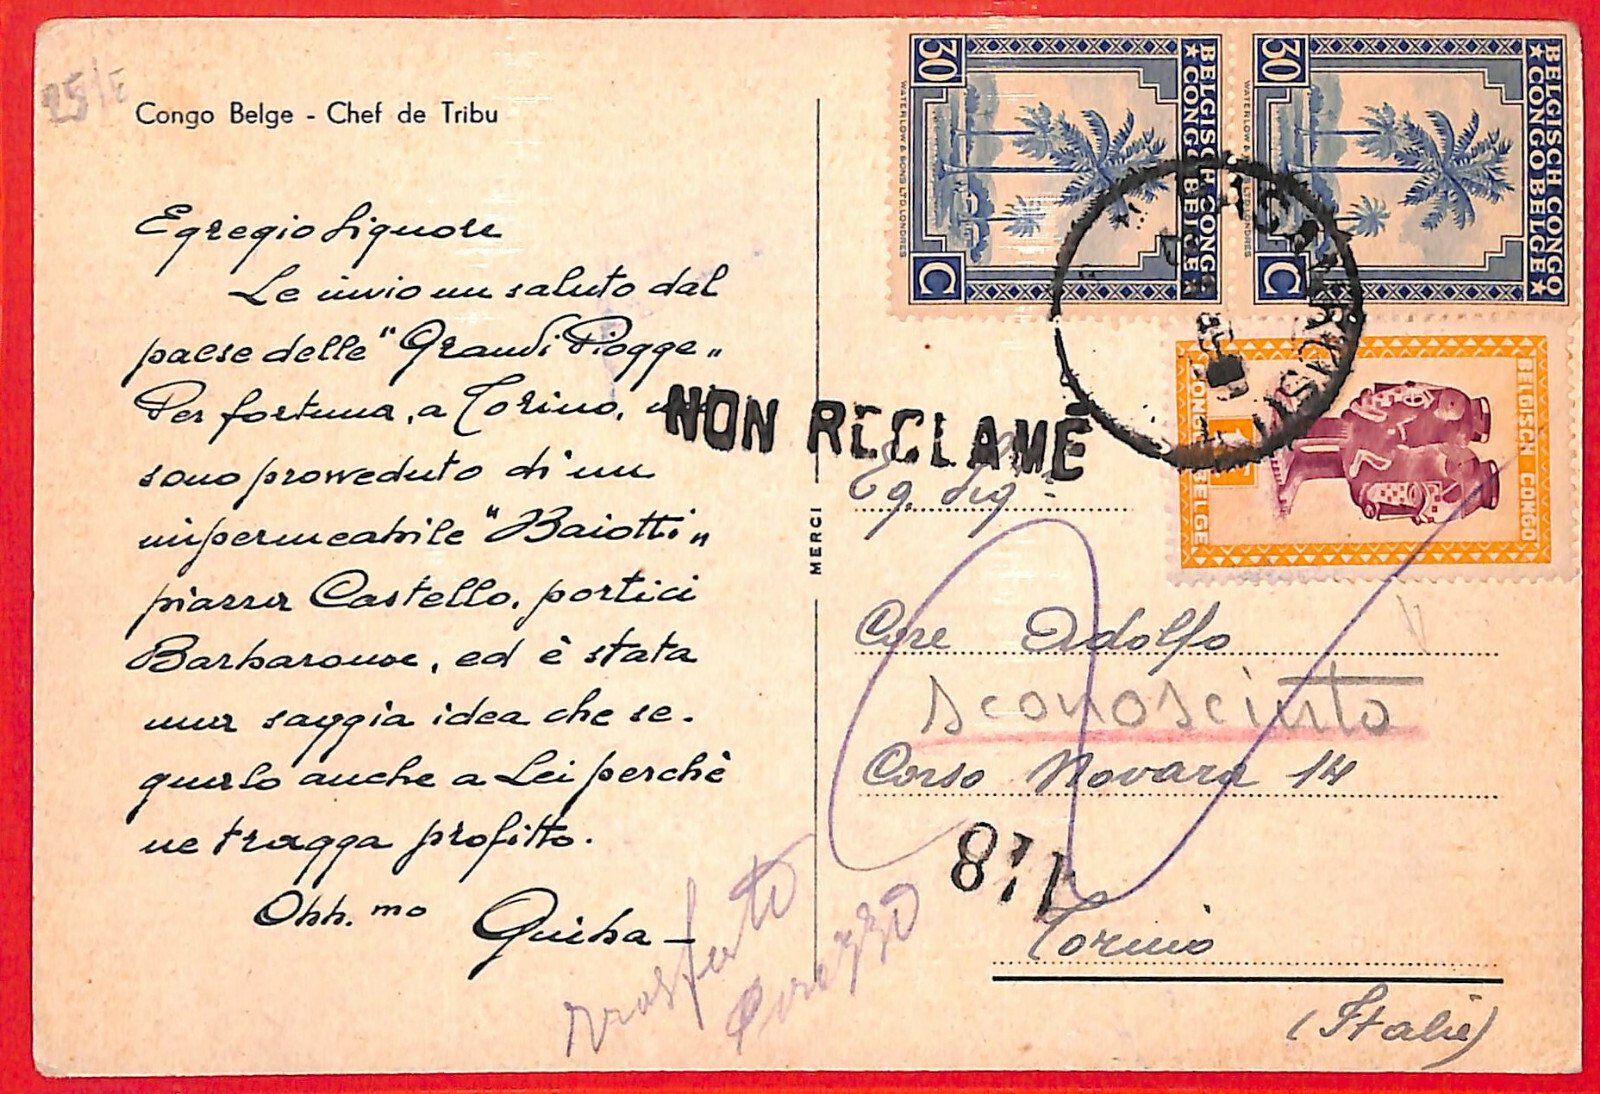 25/E
Congo Belge - Chef de Tribu
Egregio Signore
Le invio un saluto dal
paese delle "Grandi Piogge"
Per fortuna, a Torino, mi
sono provveduto di un
impermeabile "Baiotti"
piazza Castello, portici
Barbaroux, ed è stata
una saggia idea che se-
gnalo anche a Lei perchè
ne tragga profitto.
Obb.mo Guiba
MERCI
30 C
BELGISCH CONGO
★ CONGO BELGE ★
WATERLOW & SONS LTD. LONDRES
30 C
BELGISCH CONGO
★ CONGO BELGE ★
WATERLOW & SONS LTD. LONDRES
BELGISCH CONGO
CONGO BELGE
NON RECLAMÉ
Eg. Sig.
Cere Adolfo
sconosciuto
Corso Novara 14
118
Torino
(Italie)